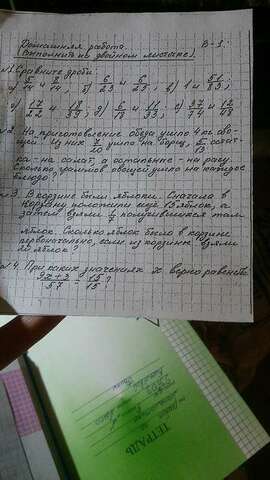 Домашняя работа. В-1.
(выполнить на двойном листочке).
№1 Сравните дроби:
а) 5/14 и 9/14; б) 6/23 и 6/25; в) 1 и 51/83;
г) 17/22 и 18/39; д) 6/18 и 11/33; е) 37/74 и 12/48
На приготовление обеда ушло 4 кг ово-
щей. Из них 7/20 ушло на борщ,
ка - на салат, а остальное - на рагу.
Сколько граммов овощей ушло на каждое
блюдо?
3. В корзине были яблоки. Сначала в
корзину положили ещё 15 яблок, а
затем взяли 1/7 получившихся там
яблок. Сколько яблок было в корзине
первоначально, если из корзины взяли
яблок?
№4. При каких значениях х верно равенство
9х+3/57 = 15/15?
ТЕТРАДЬ